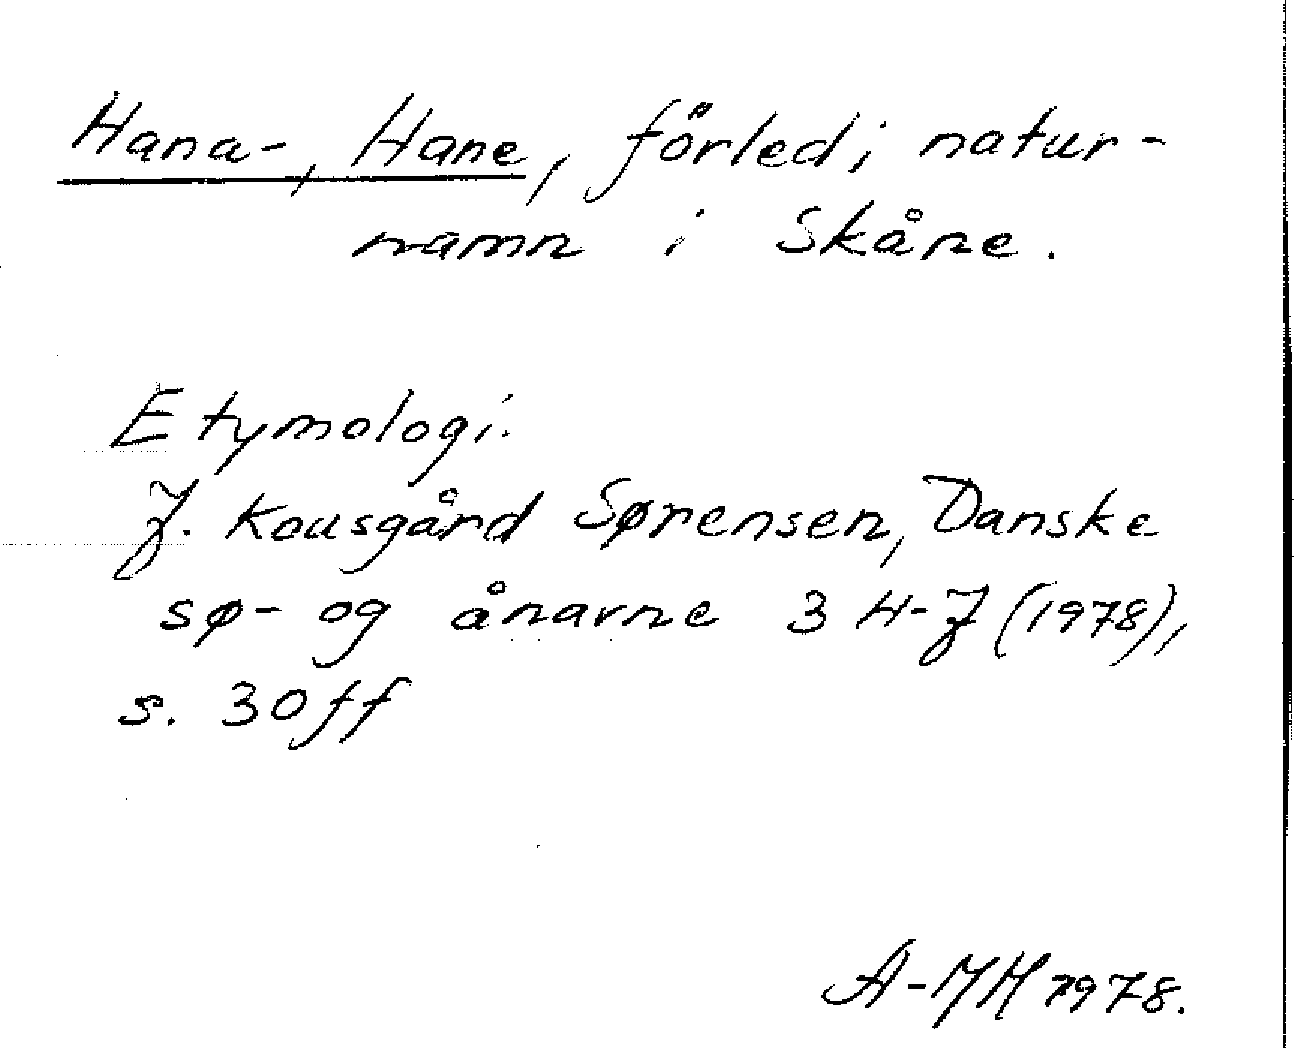 Hana-, Hane, förled i natur-
namn i Skåne.
Etymologi.
J. Kousgård Sørensen, Danske
sø- og ånavne 3 H-J (1978),
s. 30 ff
A-MH 1978.